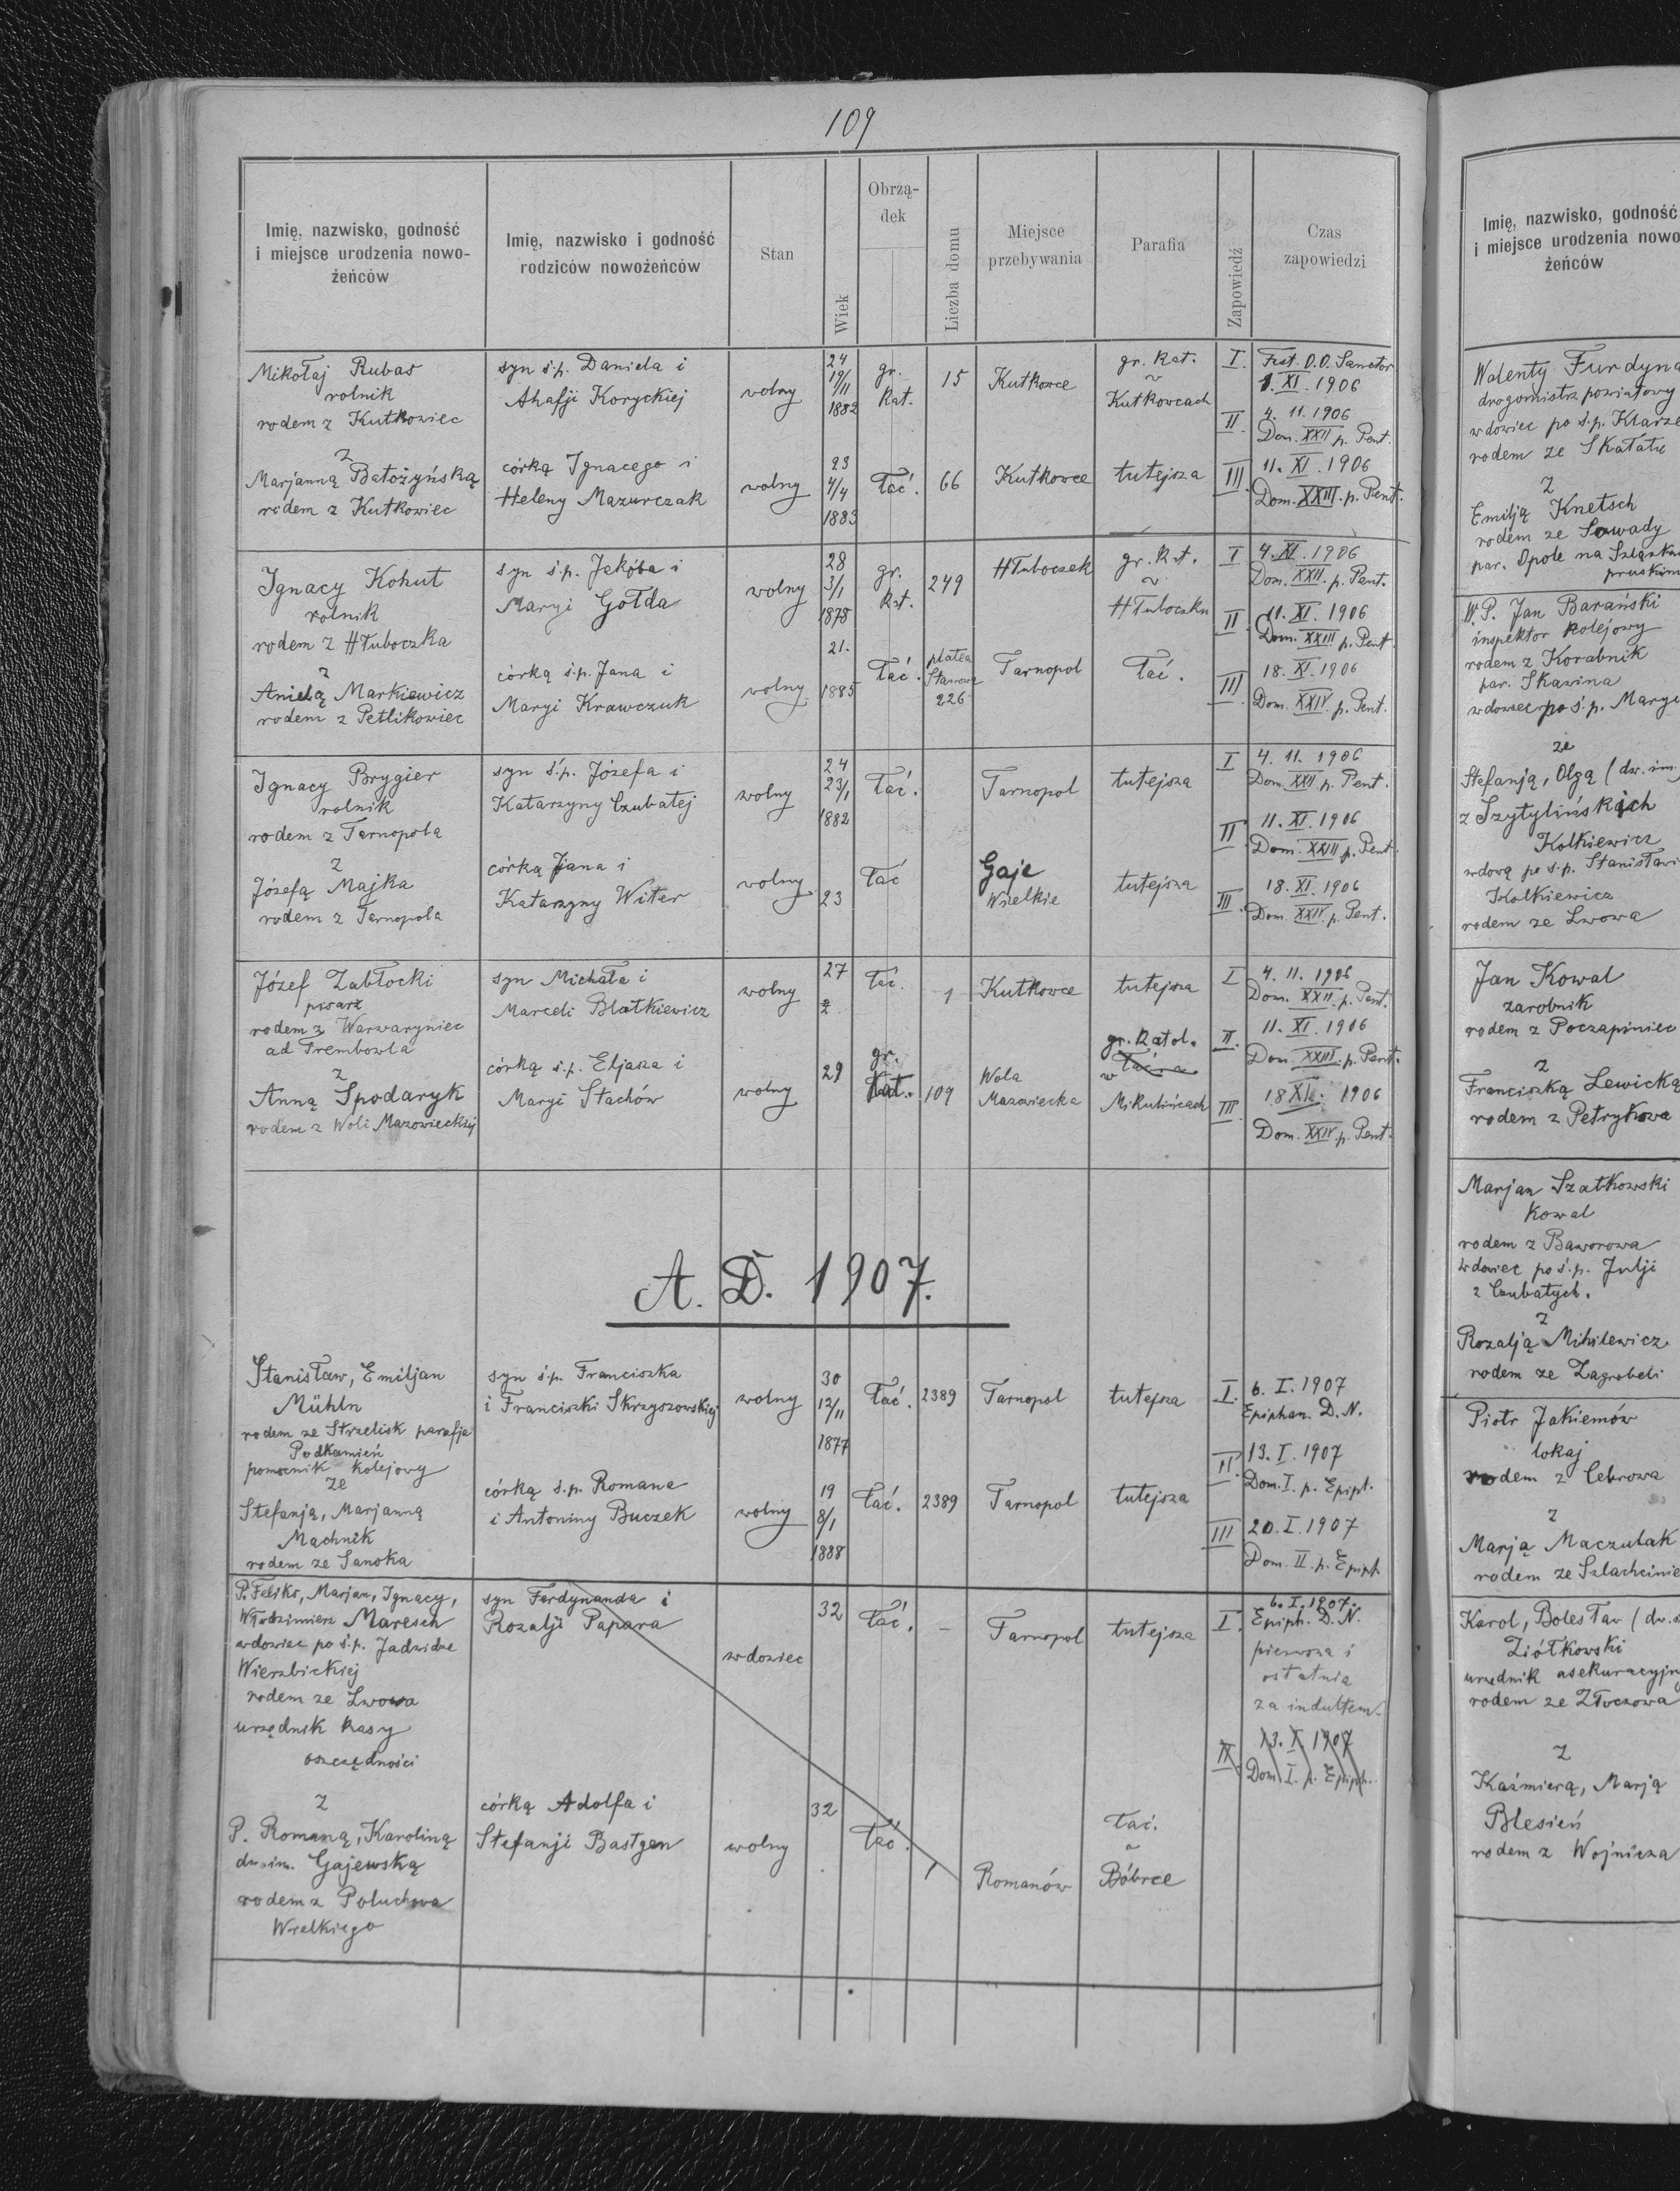 109
Imię, nazwisko, godność
i miejsce urodzenia nowo-
żeńców
Imię, nazwisko i godność
rodziców nowożeńców
Stan
Wiek
Obrzą-
dek
Liczba domu
Miejsce
przebywania
Parafia
Zapowiedź
Czas
zapowiedzi
Mikołaj Rubas
rolnik
rodem z Kutkowiec
syn ś.p. Daniela i
Ahafji Koryckiej
wolny
24
19/11
1882
gr.
Kat.
15
Kutkowce
gr. Kat.
w
Kutkowcach
I. Fest. O.O. Sanctor
1. XI. 1906
II. 4. 11. 1906
Dom. XXII p. Pent.
z
Marjanną Batożyńską
rodem z Kutkowiec
córką Ignacego i
Heleny Mazurczak
wolny
23
4/4
1883
łać.
66
Kutkowce
tutejsza
III. 11. XI. 1906
Dom. XXIII. p. Pent.
Ignacy Kohut
rolnik
rodem z Hłuboczka
syn ś.p. Jakóba i
Maryi Gołda
wolny
28
3/1
1878
gr.
Kat.
249
Hłuboczek
gr. Kat.
w
Hłuboczku
I 4. XI. 1906
Dom. XXII. p. Pent.
II 11. XI. 1906
Dom. XXIII p. Pent
z
Anielą Markiewicz
rodem z Petlikowiec
córką ś.p. Jana i
Maryi Krawczuk
wolny
21.
1885
łać.
platea
Stawowa
226
Tarnopol
łać.
III 18. XI. 1906
Dom. XXIV. p. Pent.
Ignacy Brygier
rolnik
rodem z Tarnopola
syn ś.p. Józefa i
Katarzyny Czubatej
wolny
24
23/1
1882
łać.
Tarnopol
tutejsza
I 4. 11. 1906
Dom. XXII p. Pent.
II 11. XI. 1906
Dom. XXIII p. Pent
z
Józefą Majka
rodem z Tarnopola
córką Jana i
Katarzyny Witer
wolny
23
łać
Gaje
Wielkie
tutejsza
III. 18. XI. 1906
Dom. XXIV. p. Pent.
Józef Zabłocki
pisarz
rodem z Warwaryniec
ad Trembowla
syn Michała i
Marceli Blatkiewicz
wolny
27
łać.
1
Kutkowce
tutejsza
I 4. 11. 1906
Dom. XXII. p. Pent.
II. 11. XI. 1906
Dom. XXIII. p. Pent.
z
Anną Spodaryk
rodem z Woli Mazowieckiej
córką ś.p. Eljasza i
Maryi Stachów
wolny
29
gr.
Kat.
109
Wola
Mazowiecka
gr. Katol.
w
Mikulińcach
III 18 XI. 1906
Dom. XXIV p. Pent.
A. D. 1907.
Stanisław, Emiljan
Mühln
rodem ze Strzelisk parafja
Podkamień
pomocnik kolejowy
syn ś.p. Franciszka
i Franciszki Skrzyszowskiej
wolny
30
12/11
1877
łać.
2389
Tarnopol
tutejsza
I. 6. I. 1907
Epiphan. D. N.
II 13. I. 1907
Dom. I. p. Epiph.
ze
Stefanją, Marjanną
Machnik
rodem ze Sanoka
córką ś.p. Romana
i Antoniny Buczek
wolny
19
8/1
1888
łać.
2389
Tarnopol
tutejsza
III 20. I. 1907
Dom. II. p. Epiph
P. Feliks, Marjan, Ignacy,
Włodzimierz Maresch
wdowiec po ś.p. Jadwidze
Wierzbickiej
rodem ze Lwowa
urzędnik kasy
oszczędności
syn Ferdynanda i
Rozalji Papara
wdowiec
32
łać.
-
Tarnopol
tutejsza
I. 6. I. 1907.
Epiph. D. N.
pierwsza i
ostatnia
za indultem.
II 13. I. 1907
Dom. I. p. Epiph.
z
P. Romaną, Karoliną
dw. im. Gajewską
rodem z Poluchowa
Wielkiego
córką Adolfa i
Stefanji Bastgen
wolny
32
łać.
1
Romanów
łać.
w
Bóbrce
Imię, nazwisko, godność
i miejsce urodzenia nowo
żeńców
Walenty Furdyna
drogomistrz powiatowy
wdowiec po ś.p. Klarze
rodem ze Skałatu
z
Emilją Knetsch
rodem ze Sowady
par. Opole na Szląsku
pruskim
W. P. Jan Barański
inspektor kolejowy
rodem z Korabnik
par. Skawina
wdowiec po ś.p. Marye
ze
Stefanją, Olgą (dw. im.
z Szytylińskich
Kolkiewicz
wdową po ś.p. Stanisław
Kolkiewicz
rodem ze Lwowa
Jan Kowal
zarobnik
rodem z Poczapiniec
z
Franciszką Lewicką
rodem z Petrykowa
Marjan Szatkowski
kowal
rodem z Baworowa
wdowiec po ś.p. Julji
z Czubatych.
z
Rozalją Mihilewicz
rodem ze Zagrobeli
Piotr Jakiemów
lokaj
rodem z Cebrowa
z
Marją Maczulak
rodem ze Szlachcinie
Karol, Bolesław (dw.
Ziółkowski
urzędnik asekuracyjny
rodem ze Złoczowa
z
Kaźmierą, Marją
Blesień
rodem z Wojnicza